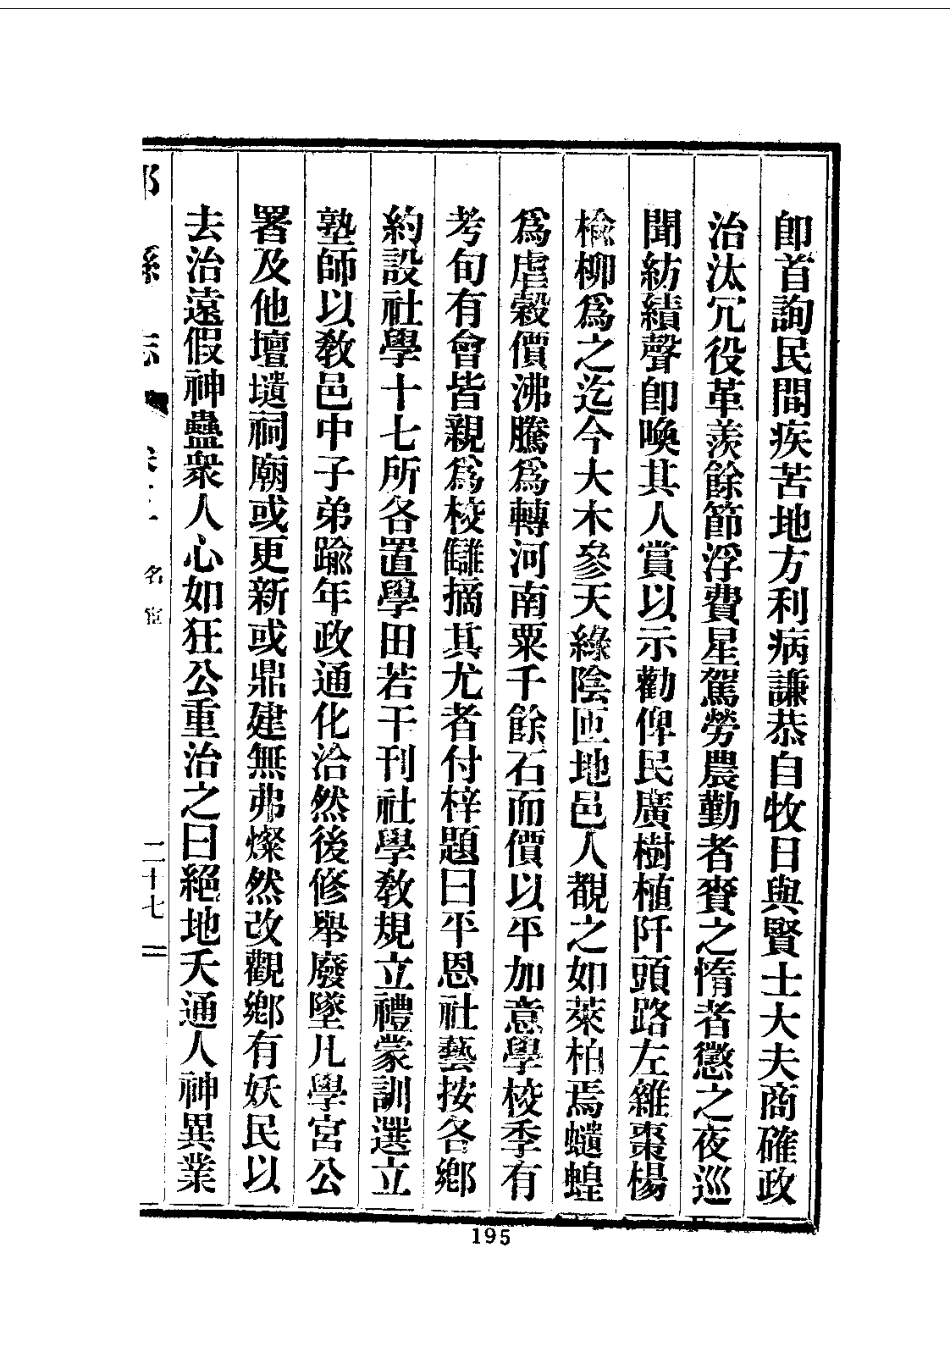 卽首詢民間疾苦地方利病謙恭自牧日與賢士大夫商確政
治汰冗役革羨餘節浮費星駕勞農勤者賚之惰者懲之夜巡
聞紡績聲卽喚其人賞以示勸俾民廣樹植阡頭路左雜棗楊
檢柳爲之迄今大木參天綠陰匝地邑人覩之如萊柏焉蟽蝗
爲虐穀價沸騰爲轉河南粟千餘石而價以平加意學校季有
考旬有會皆親爲校讎摘其尤者付梓題曰平恩社藝按各鄉
約設社學十七所各置學田若干刊社學教規立禮蒙訓選立
塾師以教邑中子弟踰年政通化洽然後修舉廢墜凡學宮公
署及他壇壝祠廟或更新或鼎建無弗燦然改觀鄉有妖民以
去治遠假神蠱衆人心如狂公重治之曰絕地天通人神異業
縣志
名宦
二十七
195